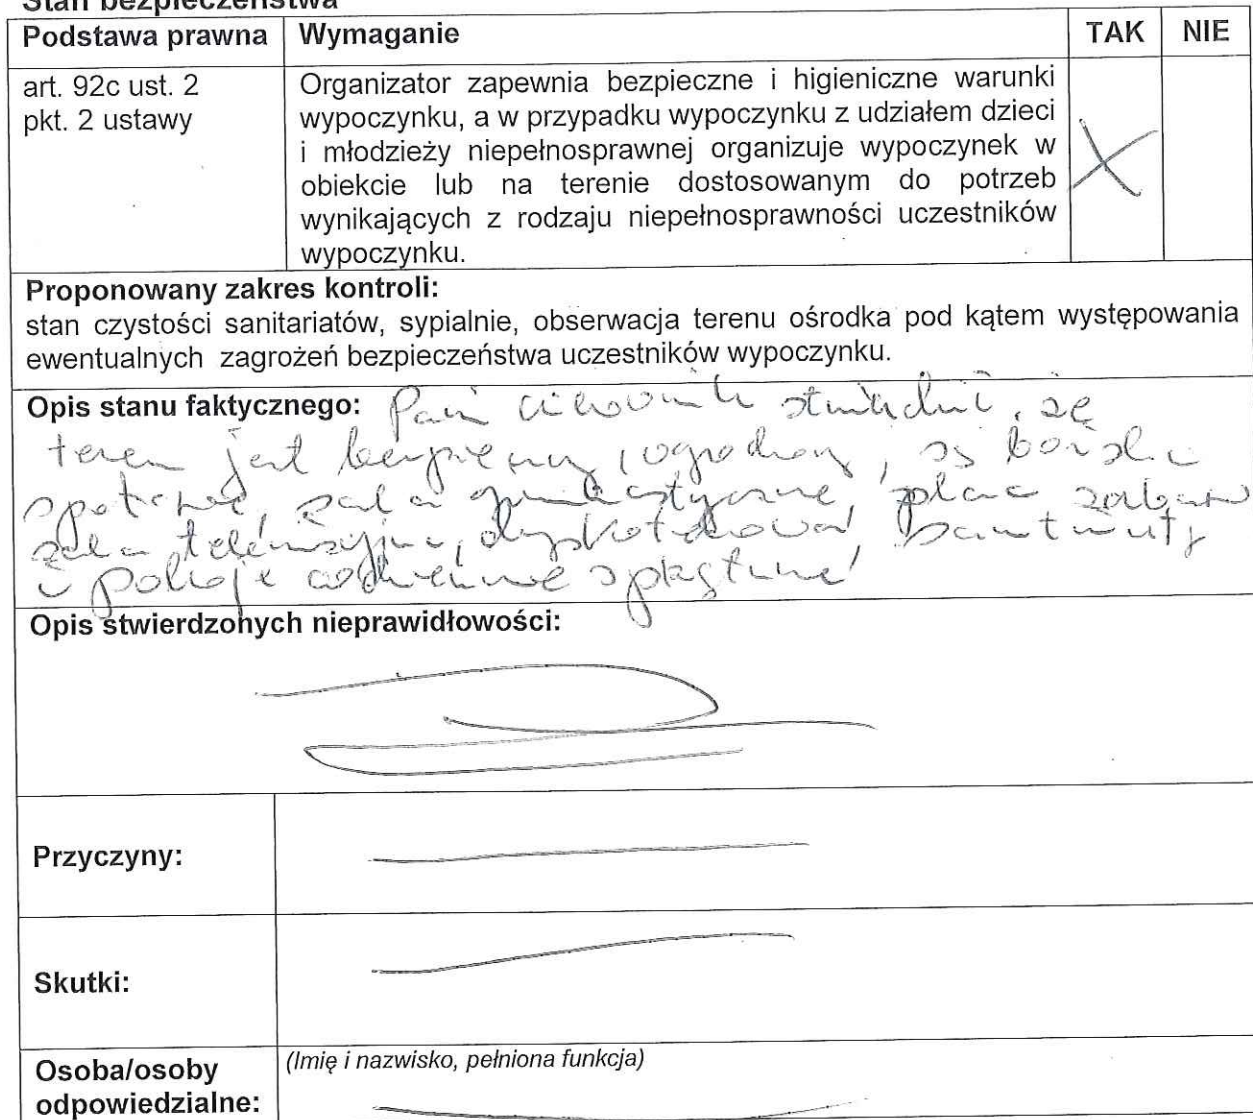 Stan bezpieczeństwa
Podstawa prawna Wymaganie TAK NIE
art. 92c ust. 2
pkt. 2 ustawy
Organizator zapewnia bezpieczne i higieniczne warunki
wypoczynku, a w przypadku wypoczynku z udziałem dzieci
i młodzieży niepełnosprawnej organizuje wypoczynek w
obiekcie lub na terenie dostosowanym do potrzeb
wynikających z rodzaju niepełnosprawności uczestników
wypoczynku.
X
Proponowany zakres kontroli:
stan czystości sanitariatów, sypialnie, obserwacja terenu ośrodka pod kątem występowania
ewentualnych zagrożeń bezpieczeństwa uczestników wypoczynku.
Opis stanu faktycznego: Pani że
teren jest bezpieczny, ogrodzony, są boiska
sala gimnastyczna, plac zabaw
sala telewizyjna, dyskotekowa,
i pokoje codziennie sprzątane
Opis stwierdzonych nieprawidłowości:
Przyczyny:
Skutki:
Osoba/osoby
odpowiedzialne:
(Imię i nazwisko, pełniona funkcja)